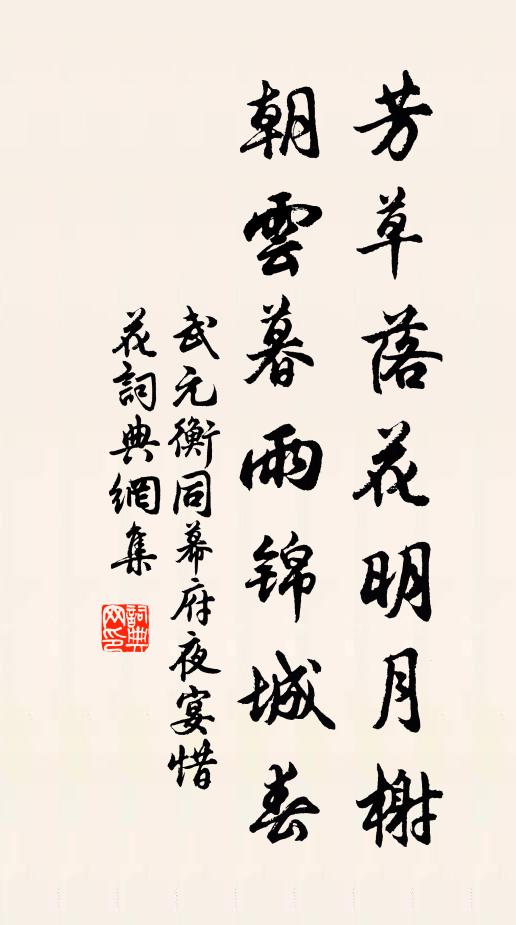 芳草落花明月榭
朝雲暮雨錦城春
武元衡同幕府夜宴惜
花詞典網集
詞典網印